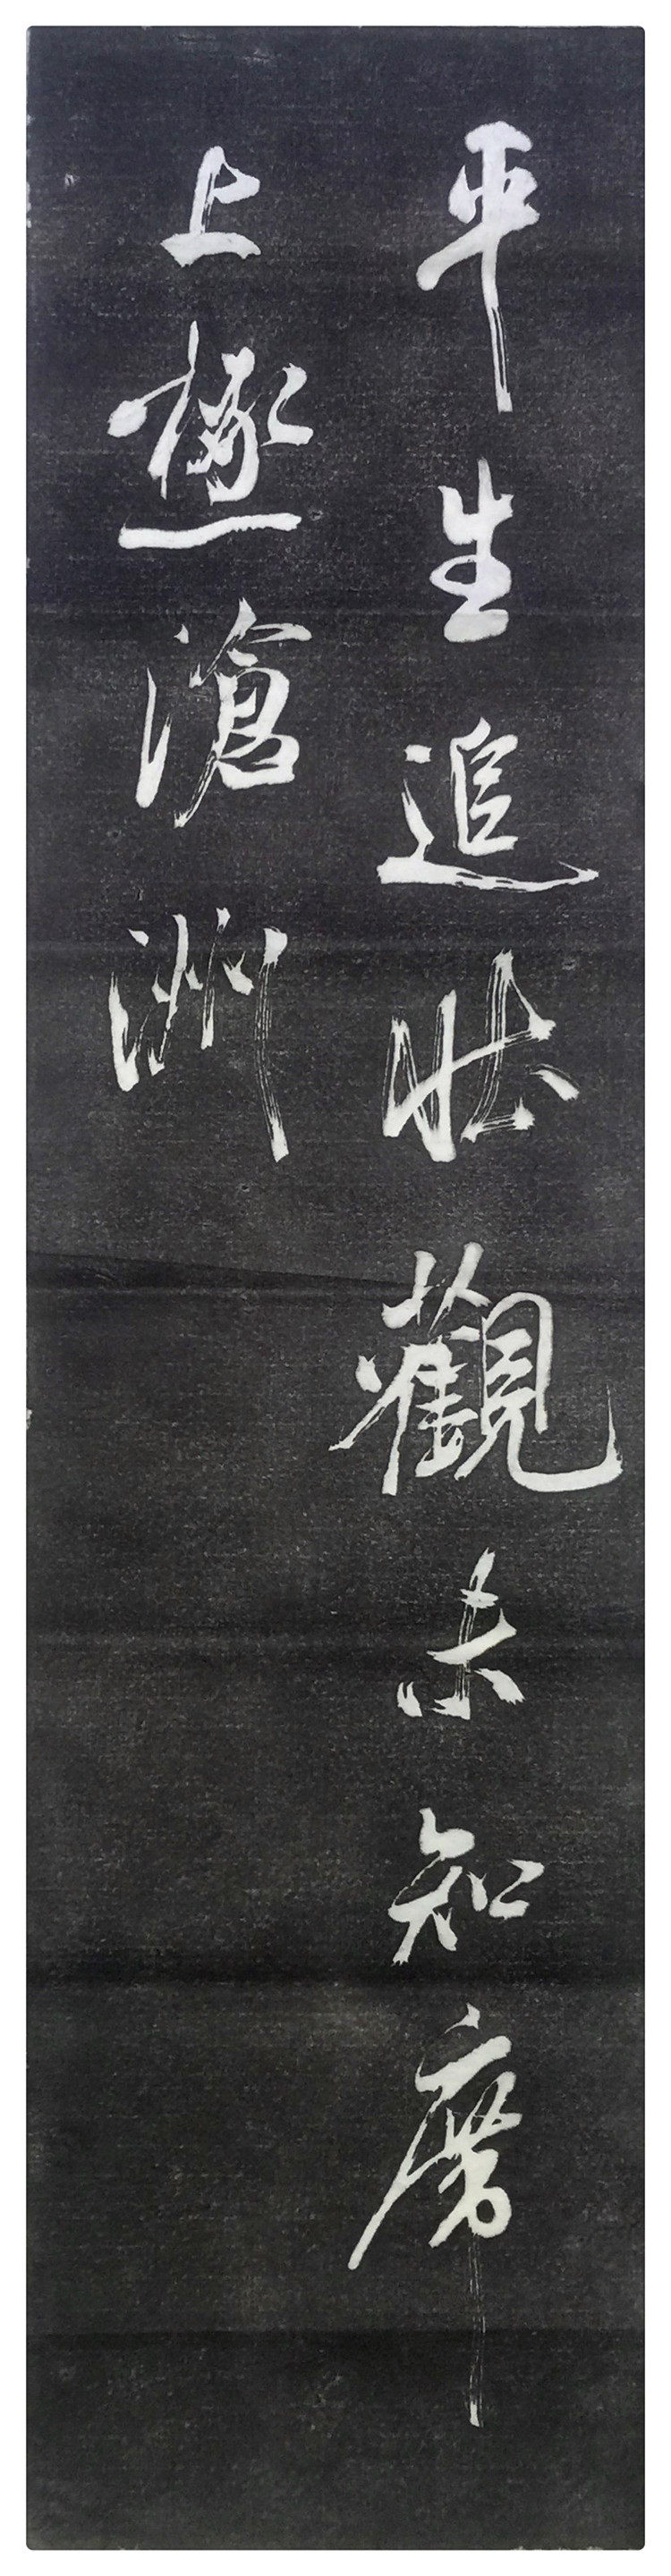 平生追壯觀未知席
上極滄洲